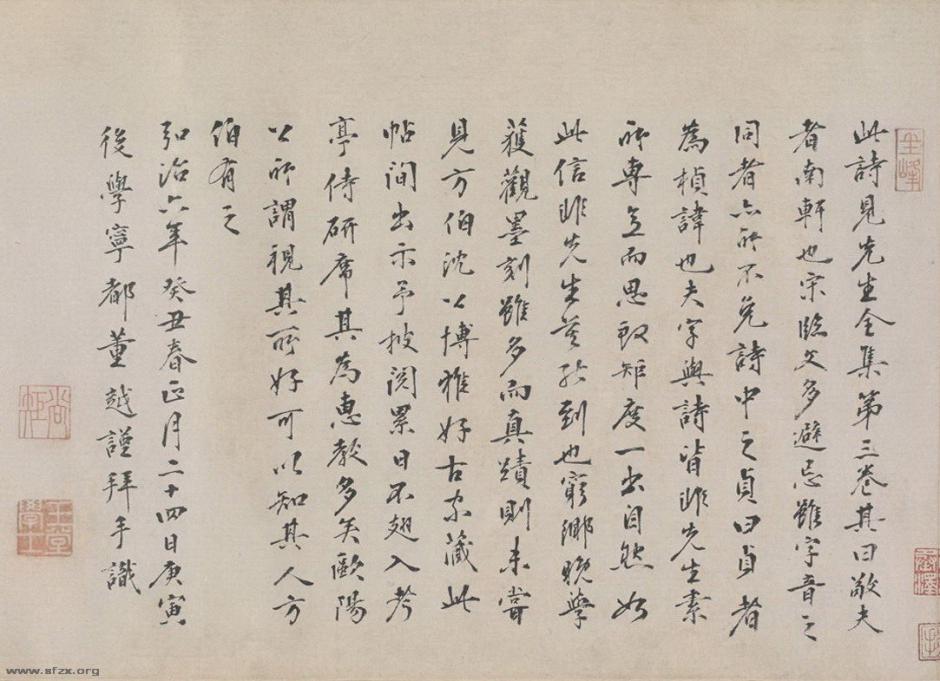 此詩見先生全集第三卷其曰敬夫
者南軒也宋臨文多避忌雖字音之
同者亦所不免詩中之貞曰貞者
為楨諱也夫字與詩皆非先生素
所專意而思致矩度一出自然如
此信非先生莫能到也窮鄉晚學
獲觀墨刻雖多而真蹟則未嘗
見方伯沈公博雅好古家藏此
帖間出示予披閱累日不翅入考
亭侍研席其為惠教多矣歐陽
公所謂視其所好可以知其人方
伯有之
弘治六年癸丑春正月二十四日庚寅
後學寧都董越謹拜手識
玉峰
尚矩
玉堂學士
www.sfzx.org